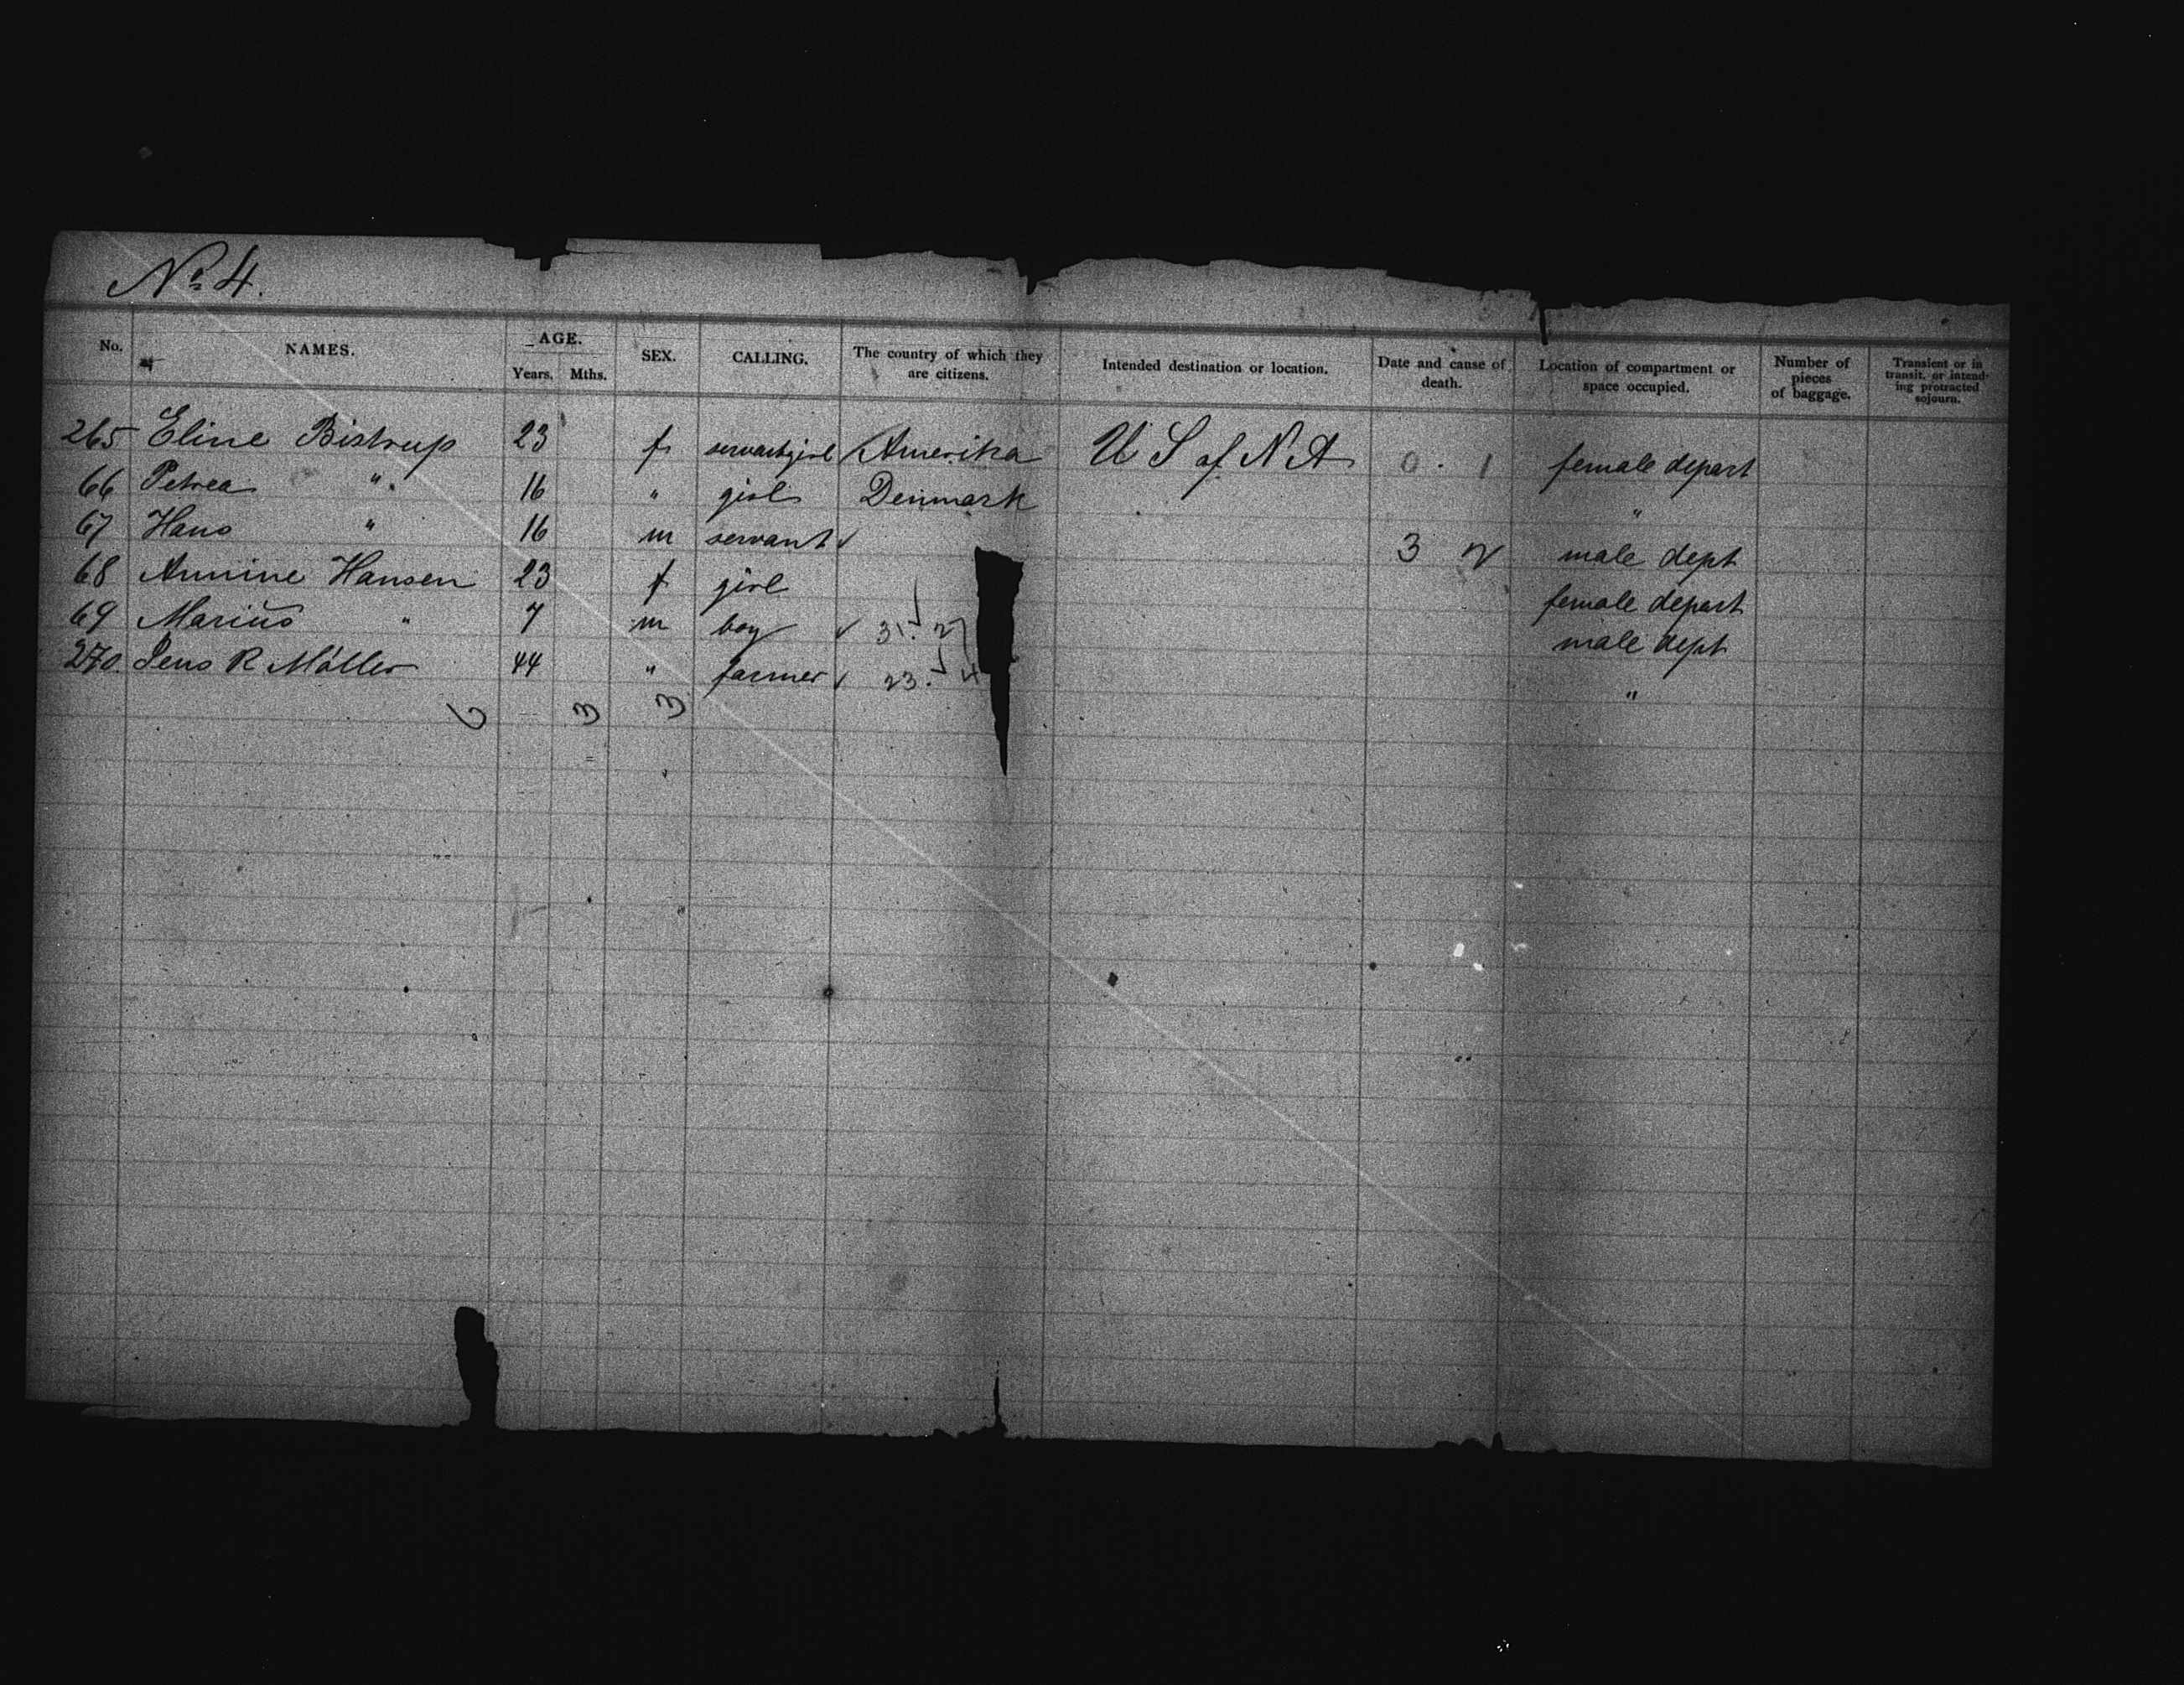 No 4.
No. NAMES. AGE. Years. Mths. SEX. CALLING. The country of which they are citizens. Intended destination or location. Date and cause of death. Location of compartment or space occupied. Number of pieces of baggage. Transient or in transit, or intending protracted sojourn.
265 Eline Bistrup 23 f servantgirl Amerika U S of N A 0 . 1 female depart
66 Petrea " 16 " girl Denmark "
67 Hans " 16 m servant ✓ 3 male dept
68 Annine Hansen 23 f girl female depart
69 Marius " 7 m boy ✓ 31. ✓ 2 male dept
270. Jens R Möller 44 " farmer ✓ 23. ✓ 4 "
6 3 3